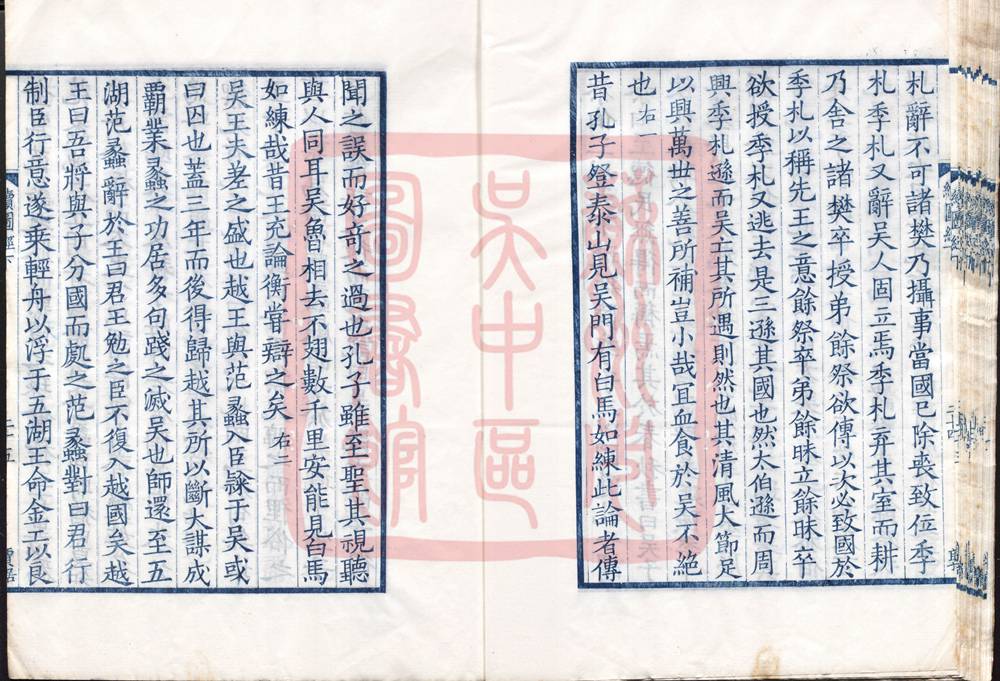 札辭不可諸樊乃攝事當國已除喪致位季
札季札又辭吳人固立焉季札弃其室而耕
乃舍之諸樊卒授弟餘祭欲傳以次必致國於
季札以稱先王之意餘祭卒弟餘昧立餘昧卒
欲授季札又逃去是三遜其國也然太伯遜而周
興季札遜而吳亡其所遇則然也其清風大節足
以興萬世之善所補豈小哉冝血食於吳不絕
也右一
昔孔子登泰山見吳門有白馬如練此論者傳
聞之誤而好奇之過也孔子雖至聖其視聽
與人同耳吳魯相去不翅數千里安能見白馬
如練哉昔王充論衡嘗辯之矣右二
吳王夫差之盛也越王與范蠡入臣隸于吳或
曰囚也蓋三年而後得歸越其所以斷大謀成
覇業蠡之功居多句踐之滅吳也師還至五
湖范蠡辭於王曰君王勉之臣不復入越國矣越
王曰吾將與子分國而處之范蠡對曰君行
制臣行意遂乘輕舟以浮于五湖王命金工以良
續圖經下
二十五
吳中區
圖書館